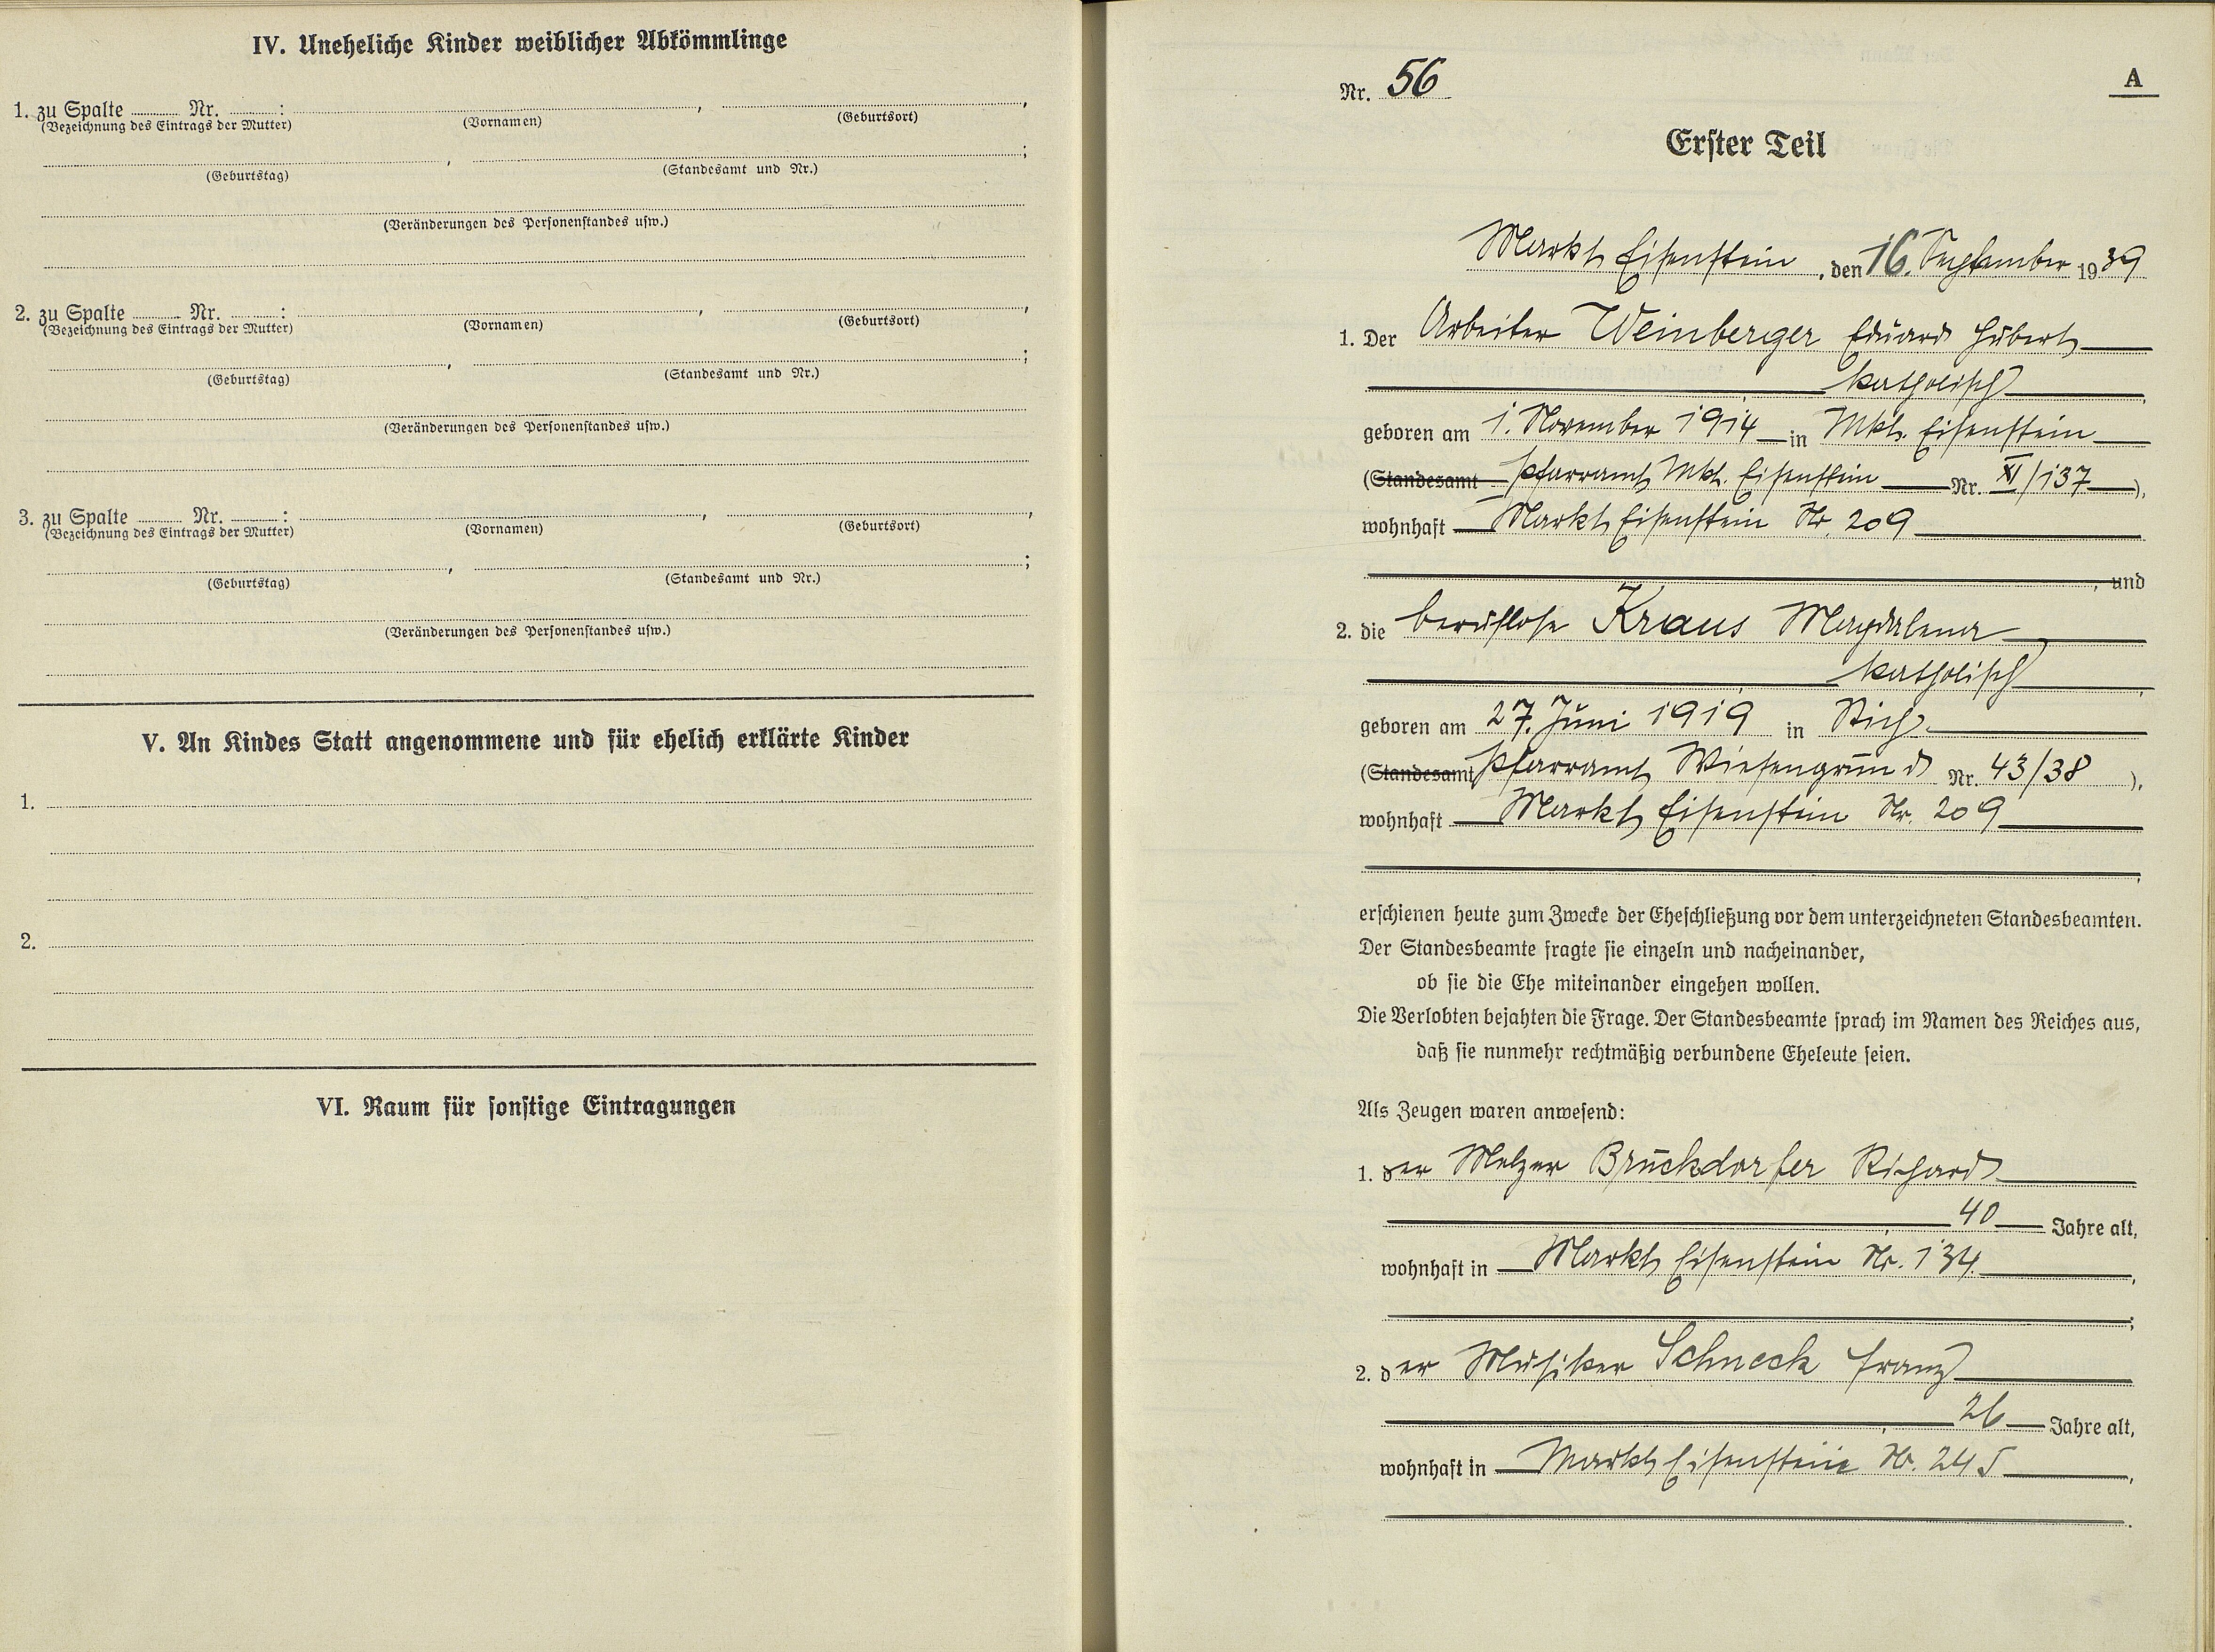 IV. Uneheliche Kinder weiblicher Abkömmlinge
1. zu Spalte ........ Nr. ........ : , ,
(Bezeichnung des Eintrags der Mutter) (Vornamen) (Geburtsort)
, ;
(Geburtstag) (Standesamt und Nr.)
(Veränderungen des Personenstandes usw.)
2. zu Spalte ........ Nr. ........ : , ,
(Bezeichnung des Eintrags der Mutter) (Vornamen) (Geburtsort)
, ;
(Geburtstag) (Standesamt und Nr.)
(Veränderungen des Personenstandes usw.)
3. zu Spalte ........ Nr. ........ : , ,
(Bezeichnung des Eintrags der Mutter) (Vornamen) (Geburtsort)
, ;
(Geburtstag) (Standesamt und Nr.)
(Veränderungen des Personenstandes usw.)
V. An Kindes Statt angenommene und für ehelich erklärte Kinder
1.
2.
VI. Raum für sonstige Eintragungen
Nr. 56
A
Erster Teil
Markt Eisenstein, den 16. September 1939
1. Der Arbeiter Weinberger Eduard Hubert
katholisch,
geboren am 1. November 1914 in Mkt. Eisenstein
(Standesamt Pfarramt Mkt. Eisenstein Nr. XI/137),
wohnhaft Markt Eisenstein Nr. 209
, und
2. die berufslose Kraus Magdalena
katholisch,
geboren am 27. Juni 1919 in Stich
(Standesamt Pfarramt Wiesengrund Nr. 43/38),
wohnhaft Markt Eisenstein Nr. 209
,
erschienen heute zum Zwecke der Eheschließung vor dem unterzeichneten Standesbeamten.
Der Standesbeamte fragte sie einzeln und nacheinander,
ob sie die Ehe miteinander eingehen wollen.
Die Verlobten bejahten die Frage. Der Standesbeamte sprach im Namen des Reiches aus,
daß sie nunmehr rechtmäßig verbundene Eheleute seien.
Als Zeugen waren anwesend:
1. der Melzer Bruckdorfer Richard
, 40 Jahre alt,
wohnhaft in Markt Eisenstein Nr. 134,
;
2. der Musiker Schneck Franz
, 26 Jahre alt,
wohnhaft in Markt Eisenstein Nr. 245,
.